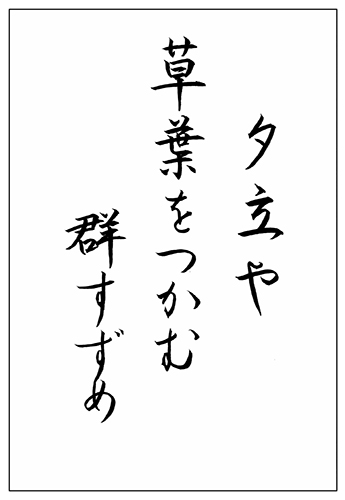 夕立や
草葉をつかむ
群すずめ